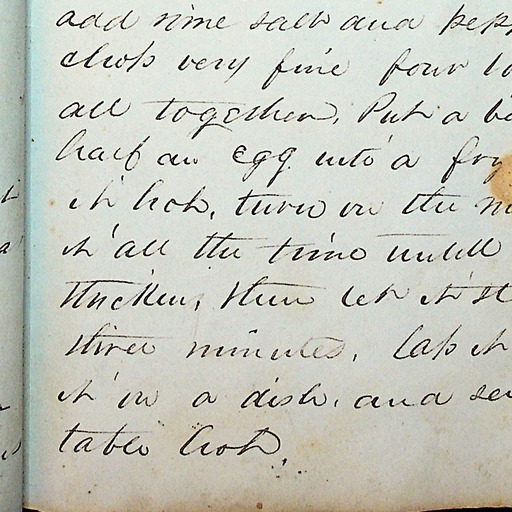 add some salt and pepp
chop very fine four
all together, Put a b
half an egg into a fry
it hot, turn in the mi
it all the time untill
thicken, then let it st
three minutes, lap it
it in a dish, and se
table hot